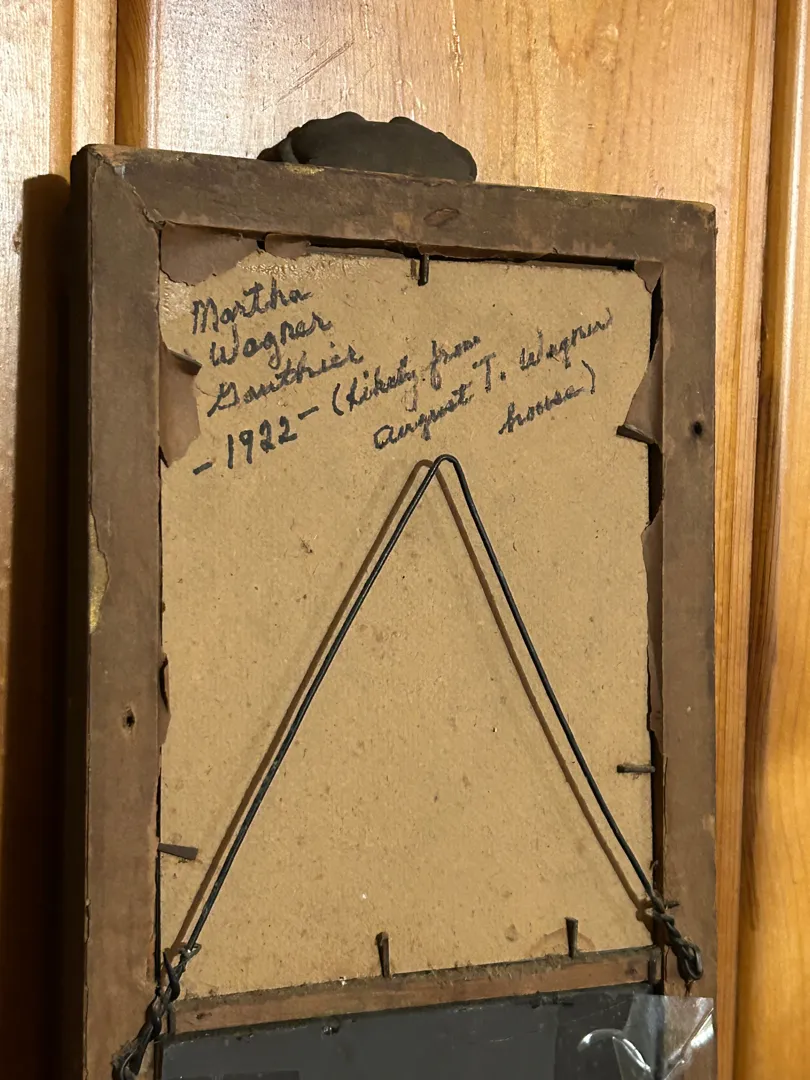 Martha
Wagner
Gauthier
- 1922 - (Likely from
August T. Wagner
house)